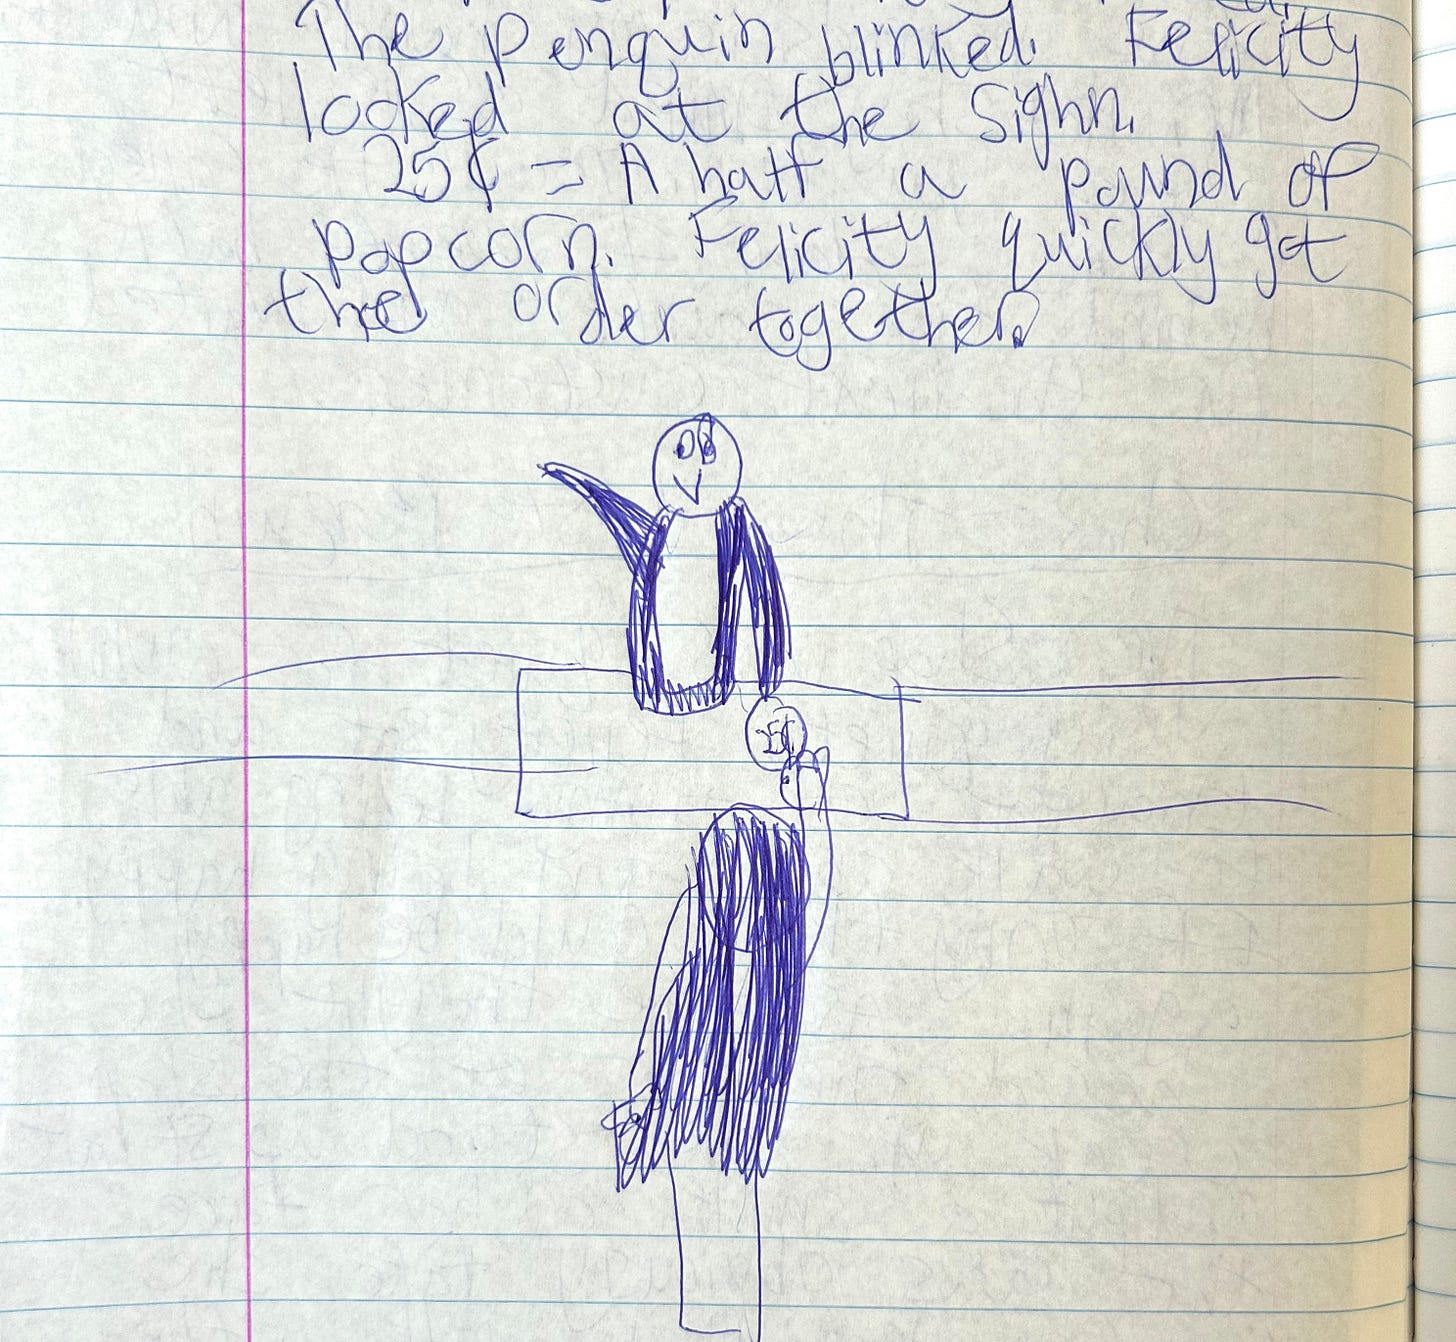 The penguin blinked. Felicity
looked at the sighn.
25¢ = A half a pound of
popcorn. Felicity quickly got
the order together.
25¢